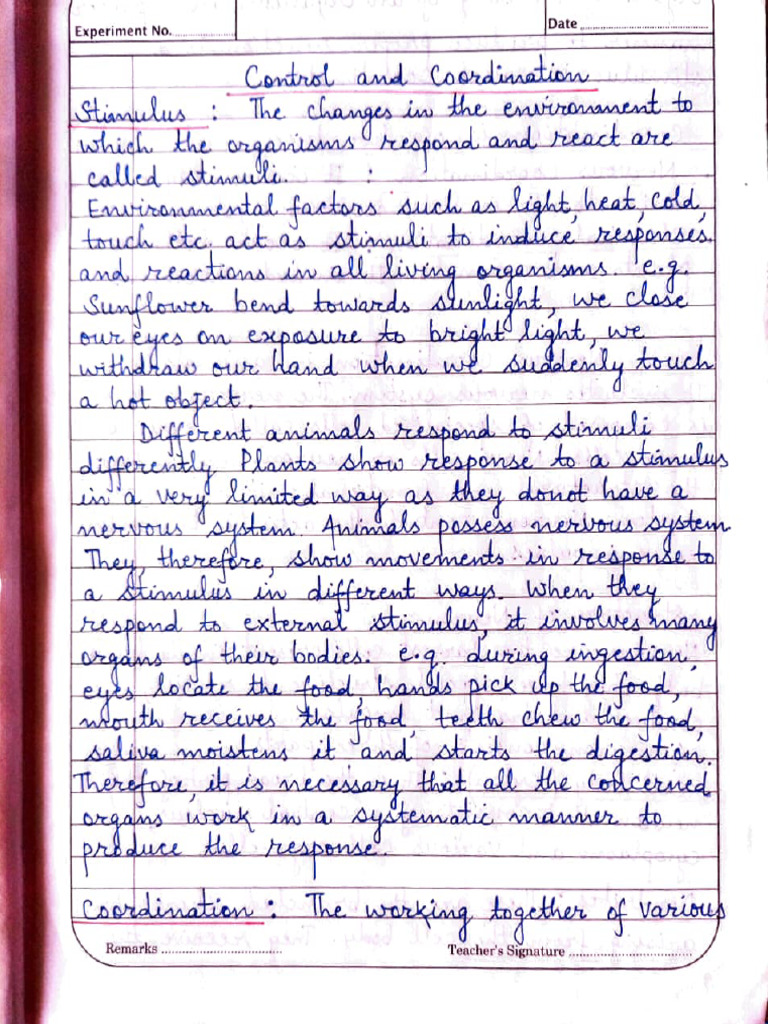 Experiment No.
Date
Control and Coordination
Stimulus : The changes in the environment to
which the organisms respond and react are
called stimuli. :
Environmental factors such as light, heat, cold,
touch etc. act as stimuli to induce responses.
and reactions in all living organisms. e.g.
Sunflower bend towards sunlight, we close
our eyes on exposure to bright light, we
withdraw our hand when we suddenly touch
a hot object.
Different animals respond to stimuli
differently. Plants show response to a stimulus
in a very limited way as they donot have a
nervous system. Animals possess nervous system.
They, therefore, show movements in response to
a stimulus in different ways. When they
respond to external stimulus, it involves many
organs of their bodies. e.g. during ingestion,
eyes locate the food, hands pick up the food,
mouth receives the food, teeth chew the food,
saliva moistens it and starts the digestion.
Therefore, it is necessary that all the concerned
organs work in a systematic manner to
produce the response.
Coordination : The working together of various
Remarks
Teacher's Signature